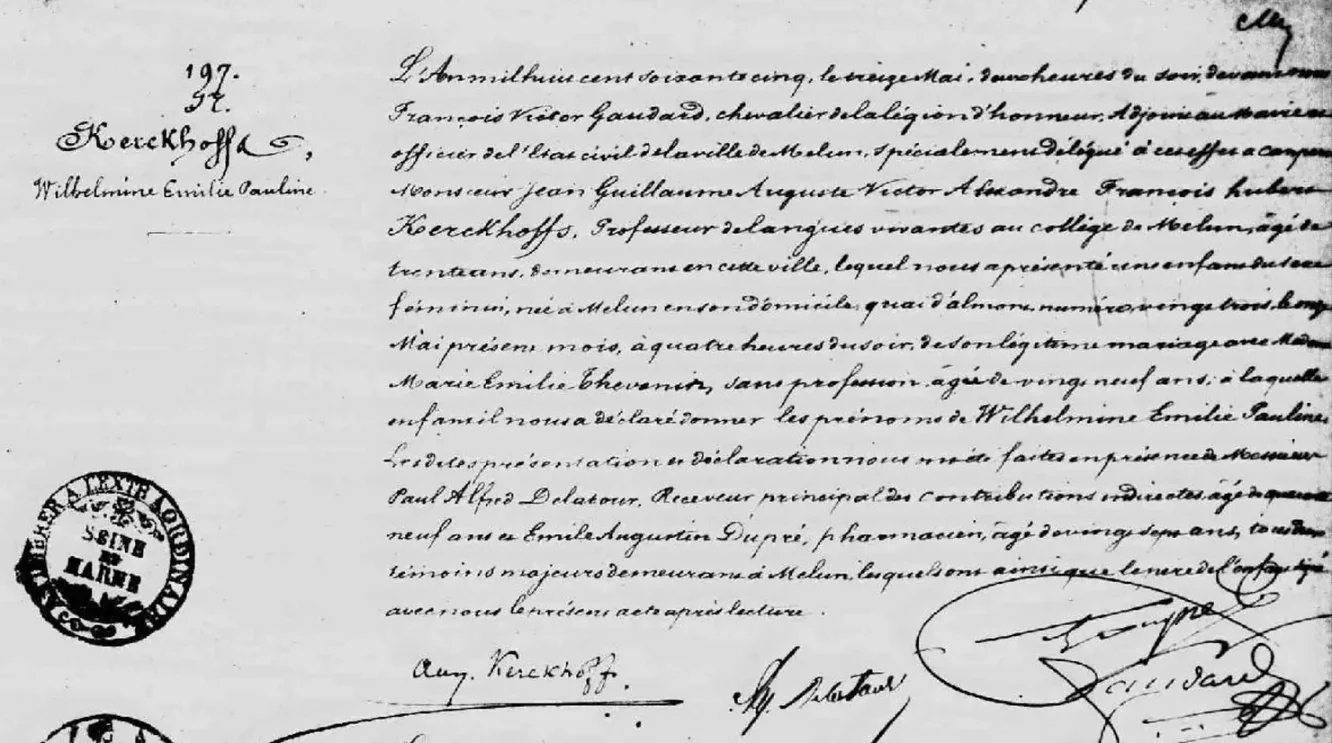 197.
57.
Kerckhoffs,
Wilhelmine Emilie Pauline
L'An mil huit cent soixante cinq, le treize Mai, deux heures du soir, devant nous
François Victor Gaudard, chevalier de la légion d'honneur, Adjoint au Maire et
officier de l'Etat civil de la ville de Melun, spécialement délégué à cet effet a comparu
Monsieur Jean Guillaume Auguste Victor Alexandre François hubert
Kerckhoffs, Professeur de langues vivantes au collège de Melun, âgé de
trente ans, demeurant en cette ville, lequel nous a présenté un enfant du sexe
féminin, née à Melun en son domicile, quai d'almont, numéro vingt trois, le onze
Mai présent mois, à quatre heures du soir, de son légitime mariage avec Madame
Marie Emilie Thevenin, sans profession âgée de vingt neuf ans; à laquelle
enfant il nous a déclaré donner les prénoms de Wilhelmine Emilie Pauline
Les dites présentation et déclaration nous ont été faites en présence de Messieurs
Paul Alfred Delatour, Receveur principal des contributions indirectes, âgé de quarante
neuf ans et Emile Augustin Dupré, pharmacien, âgé de vingt sept ans, tous deux
témoins majeurs demeurant à Melun, lesquels ont ainsi que le père de l'enfant signé
avec nous le présent acte après lecture.
A TIMBRER A L'EXTRAORDINAIRE
SEINE
ET
MARNE
Aug. Kerckhoffs.
Delatour
Dupré
Gaudard